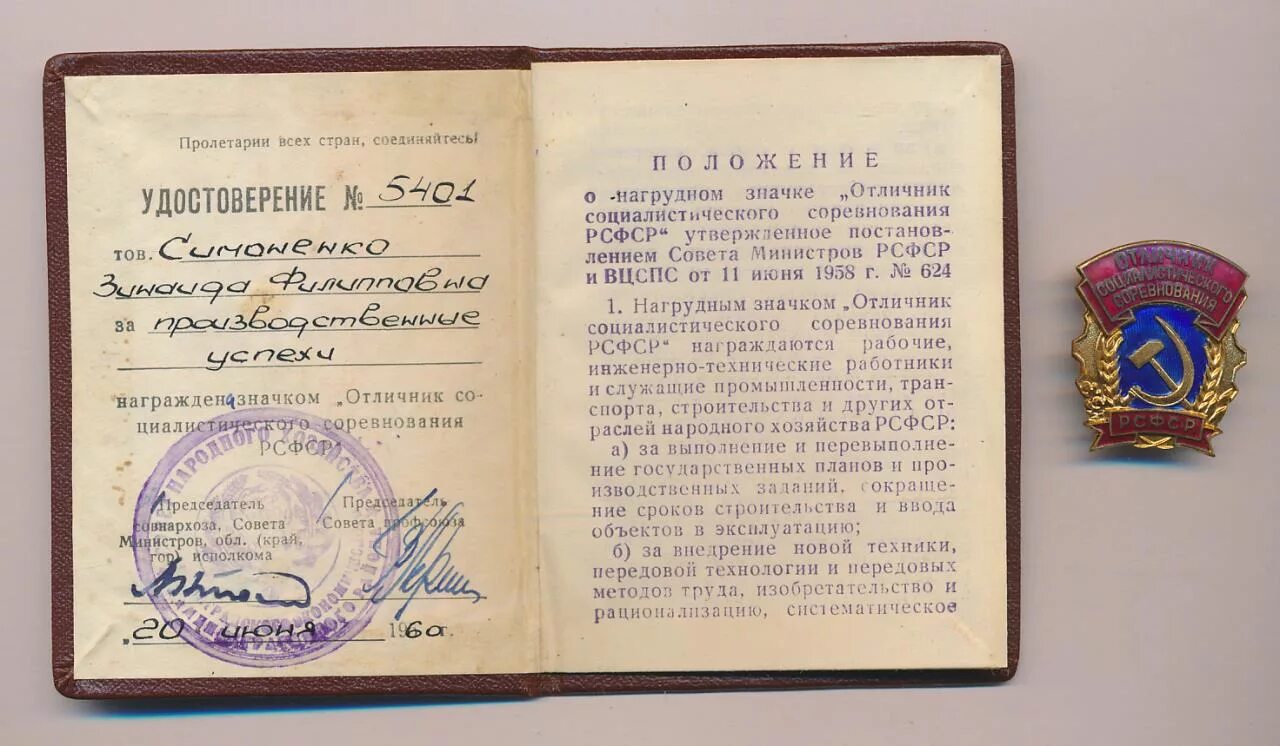 Пролетарии всех стран, соединяйтесь!
УДОСТОВЕРЕНИЕ № 5401
тов. Симоненко
Зинаида Филипповна
за производственные
успехи
награждена значком „Отличник со-
циалистического соревнования
РСФСР“
Председатель
совнархоза, Совета
Министров, обл. (край,
гор) исполкома
Председатель
Совета профсоюза
„20 июня 1960г.
НАРОДНОГО ХОЗЯЙСТВА
ПОЛОЖЕНИЕ
о нагрудном значке „Отличник
социалистического соревнования
РСФСР“ утвержденное постанов-
лением Совета Министров РСФСР
и ВЦСПС от 11 июня 1958 г. № 624
1. Нагрудным значком „Отличник
социалистического соревнования
РСФСР“ награждаются рабочие,
инженерно-технические работники
и служащие промышленности, тран-
спорта, строительства и других от-
раслей народного хозяйства РСФСР:
а) за выполнение и перевыполне-
ние государственных планов и про-
изводственных заданий, сокраще-
ние сроков строительства и ввода
объектов в эксплуатацию;
б) за внедрение новой техники,
передовой технологии и передовых
методов труда, изобретательство и
рационализацию, систематическое
ОТЛИЧНИК
СОЦИАЛИСТИЧЕСКОГО
СОРЕВНОВАНИЯ
РСФСР